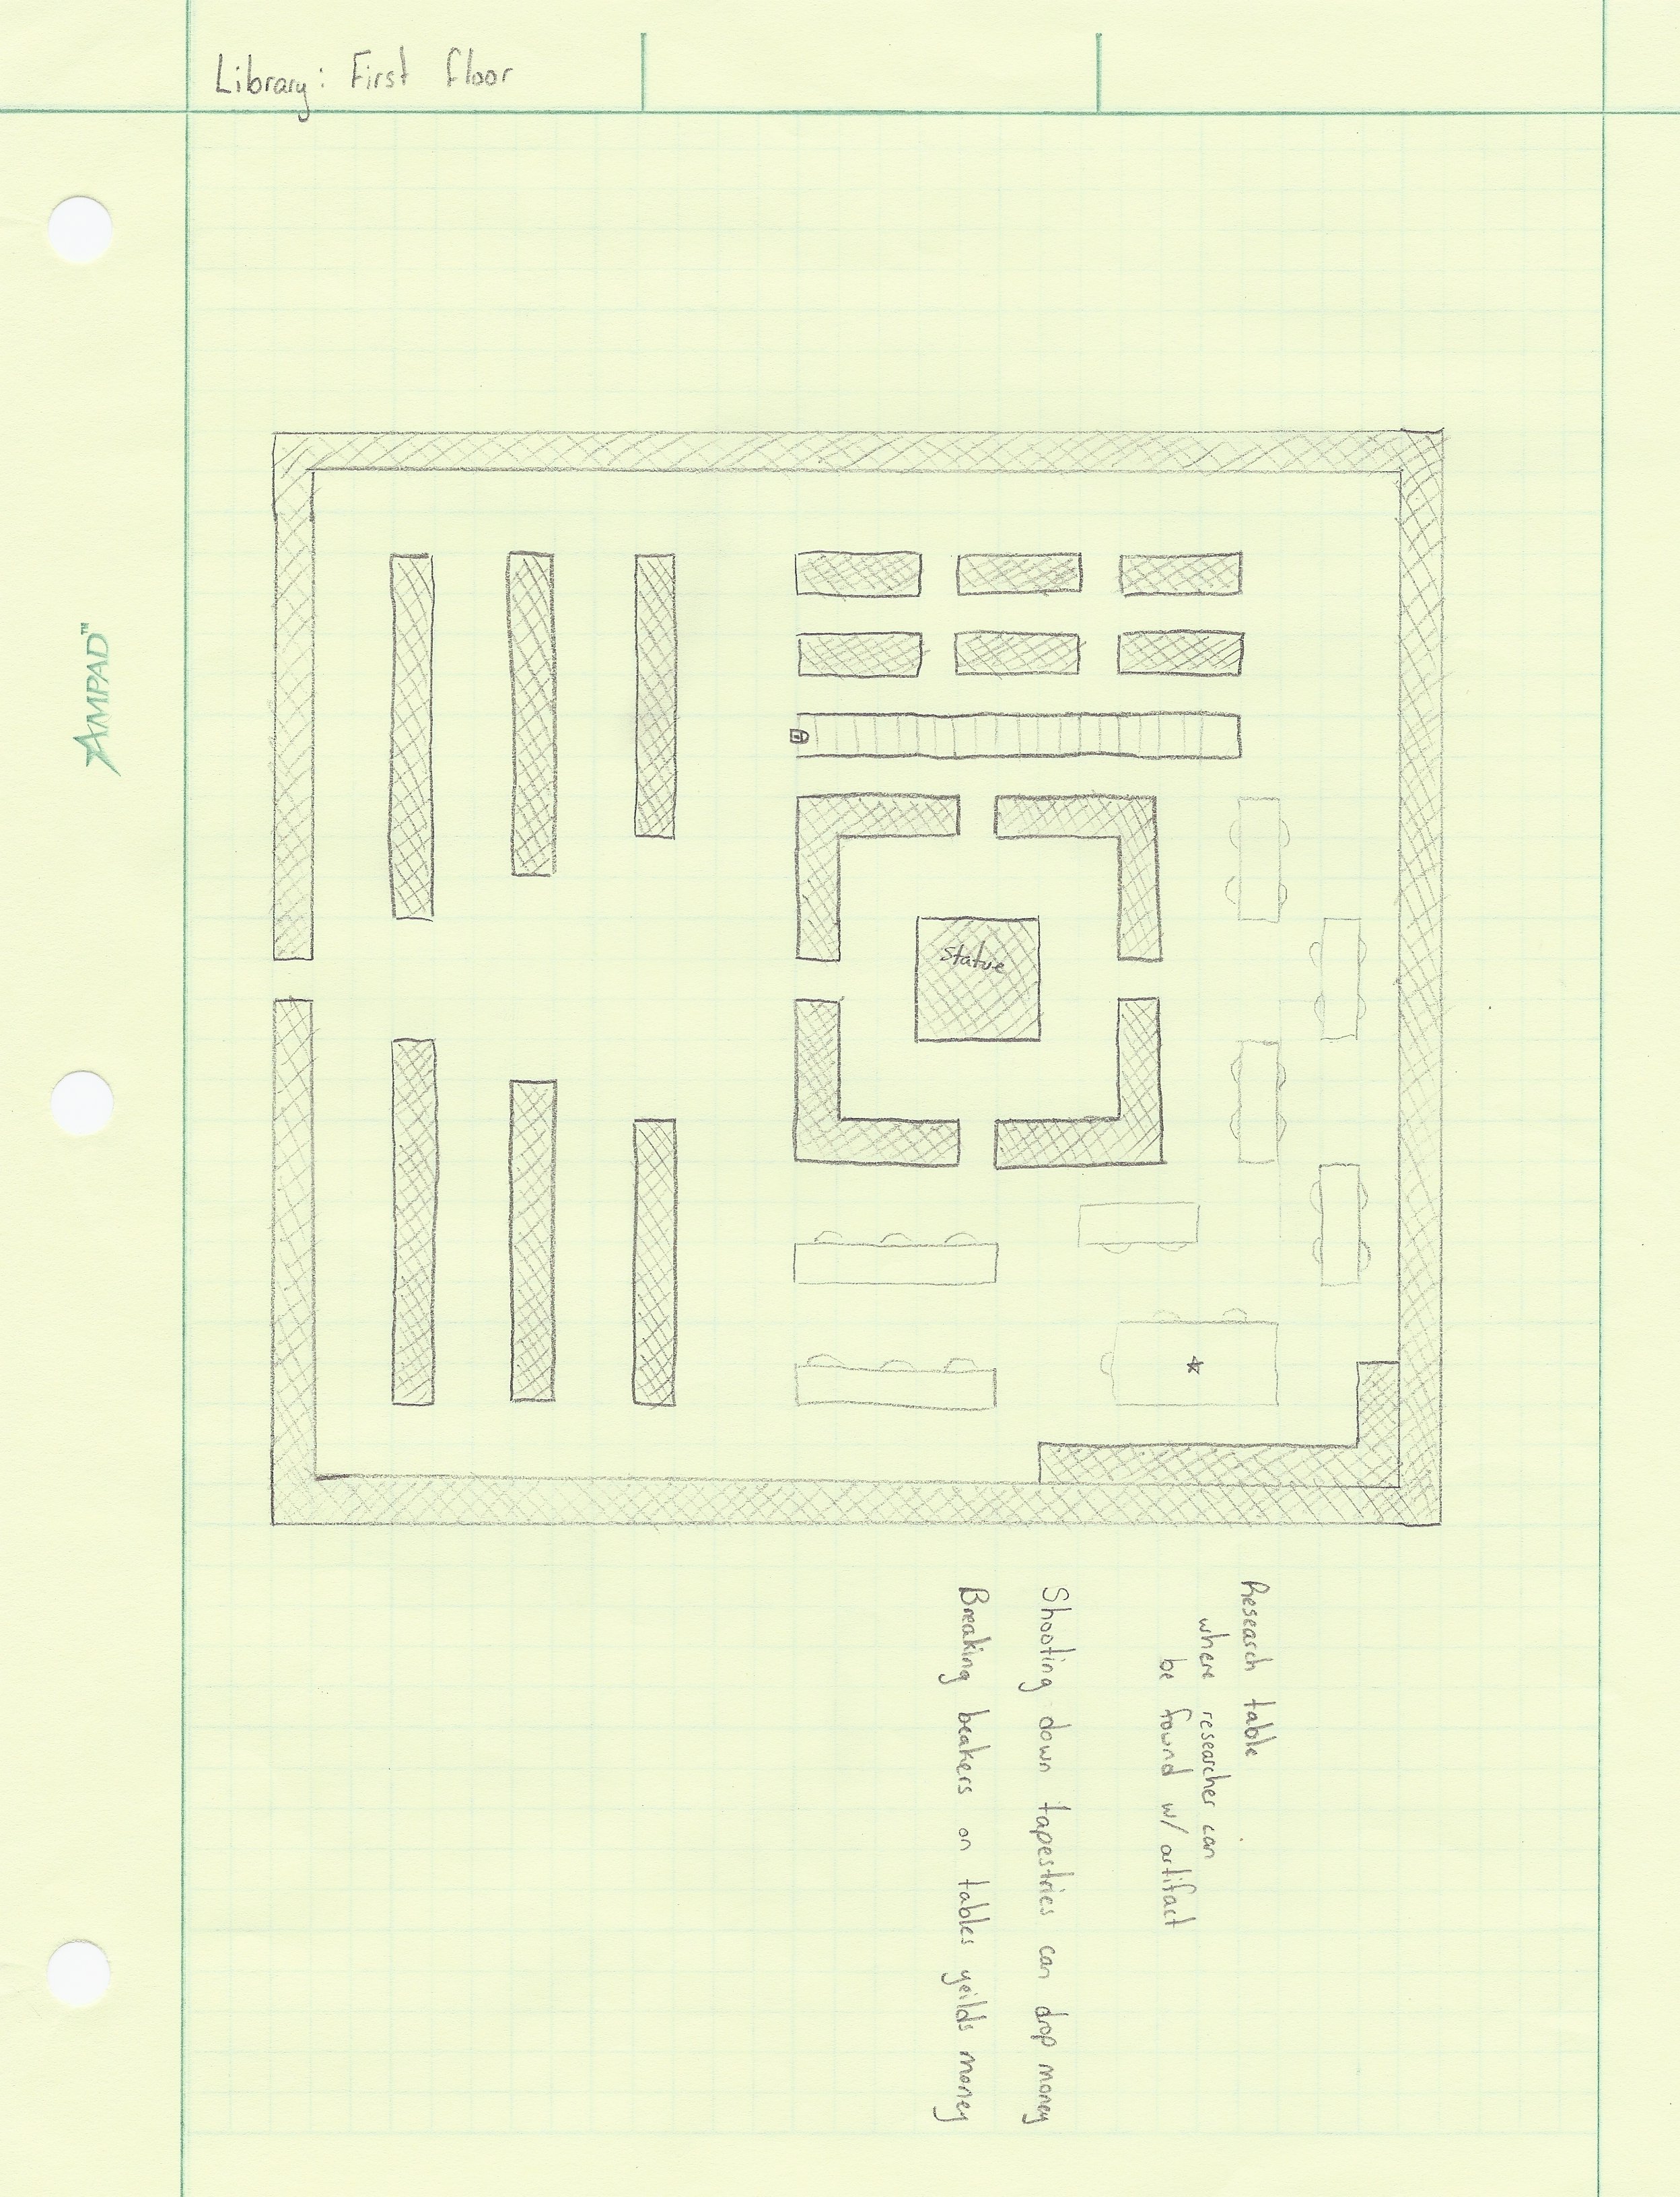 Library: First floor
AMPAD™
Statue
Research table
where researcher can
be found w/ artifact
Shooting down tapestries can drop money
Breaking beakers on tables yeilds money